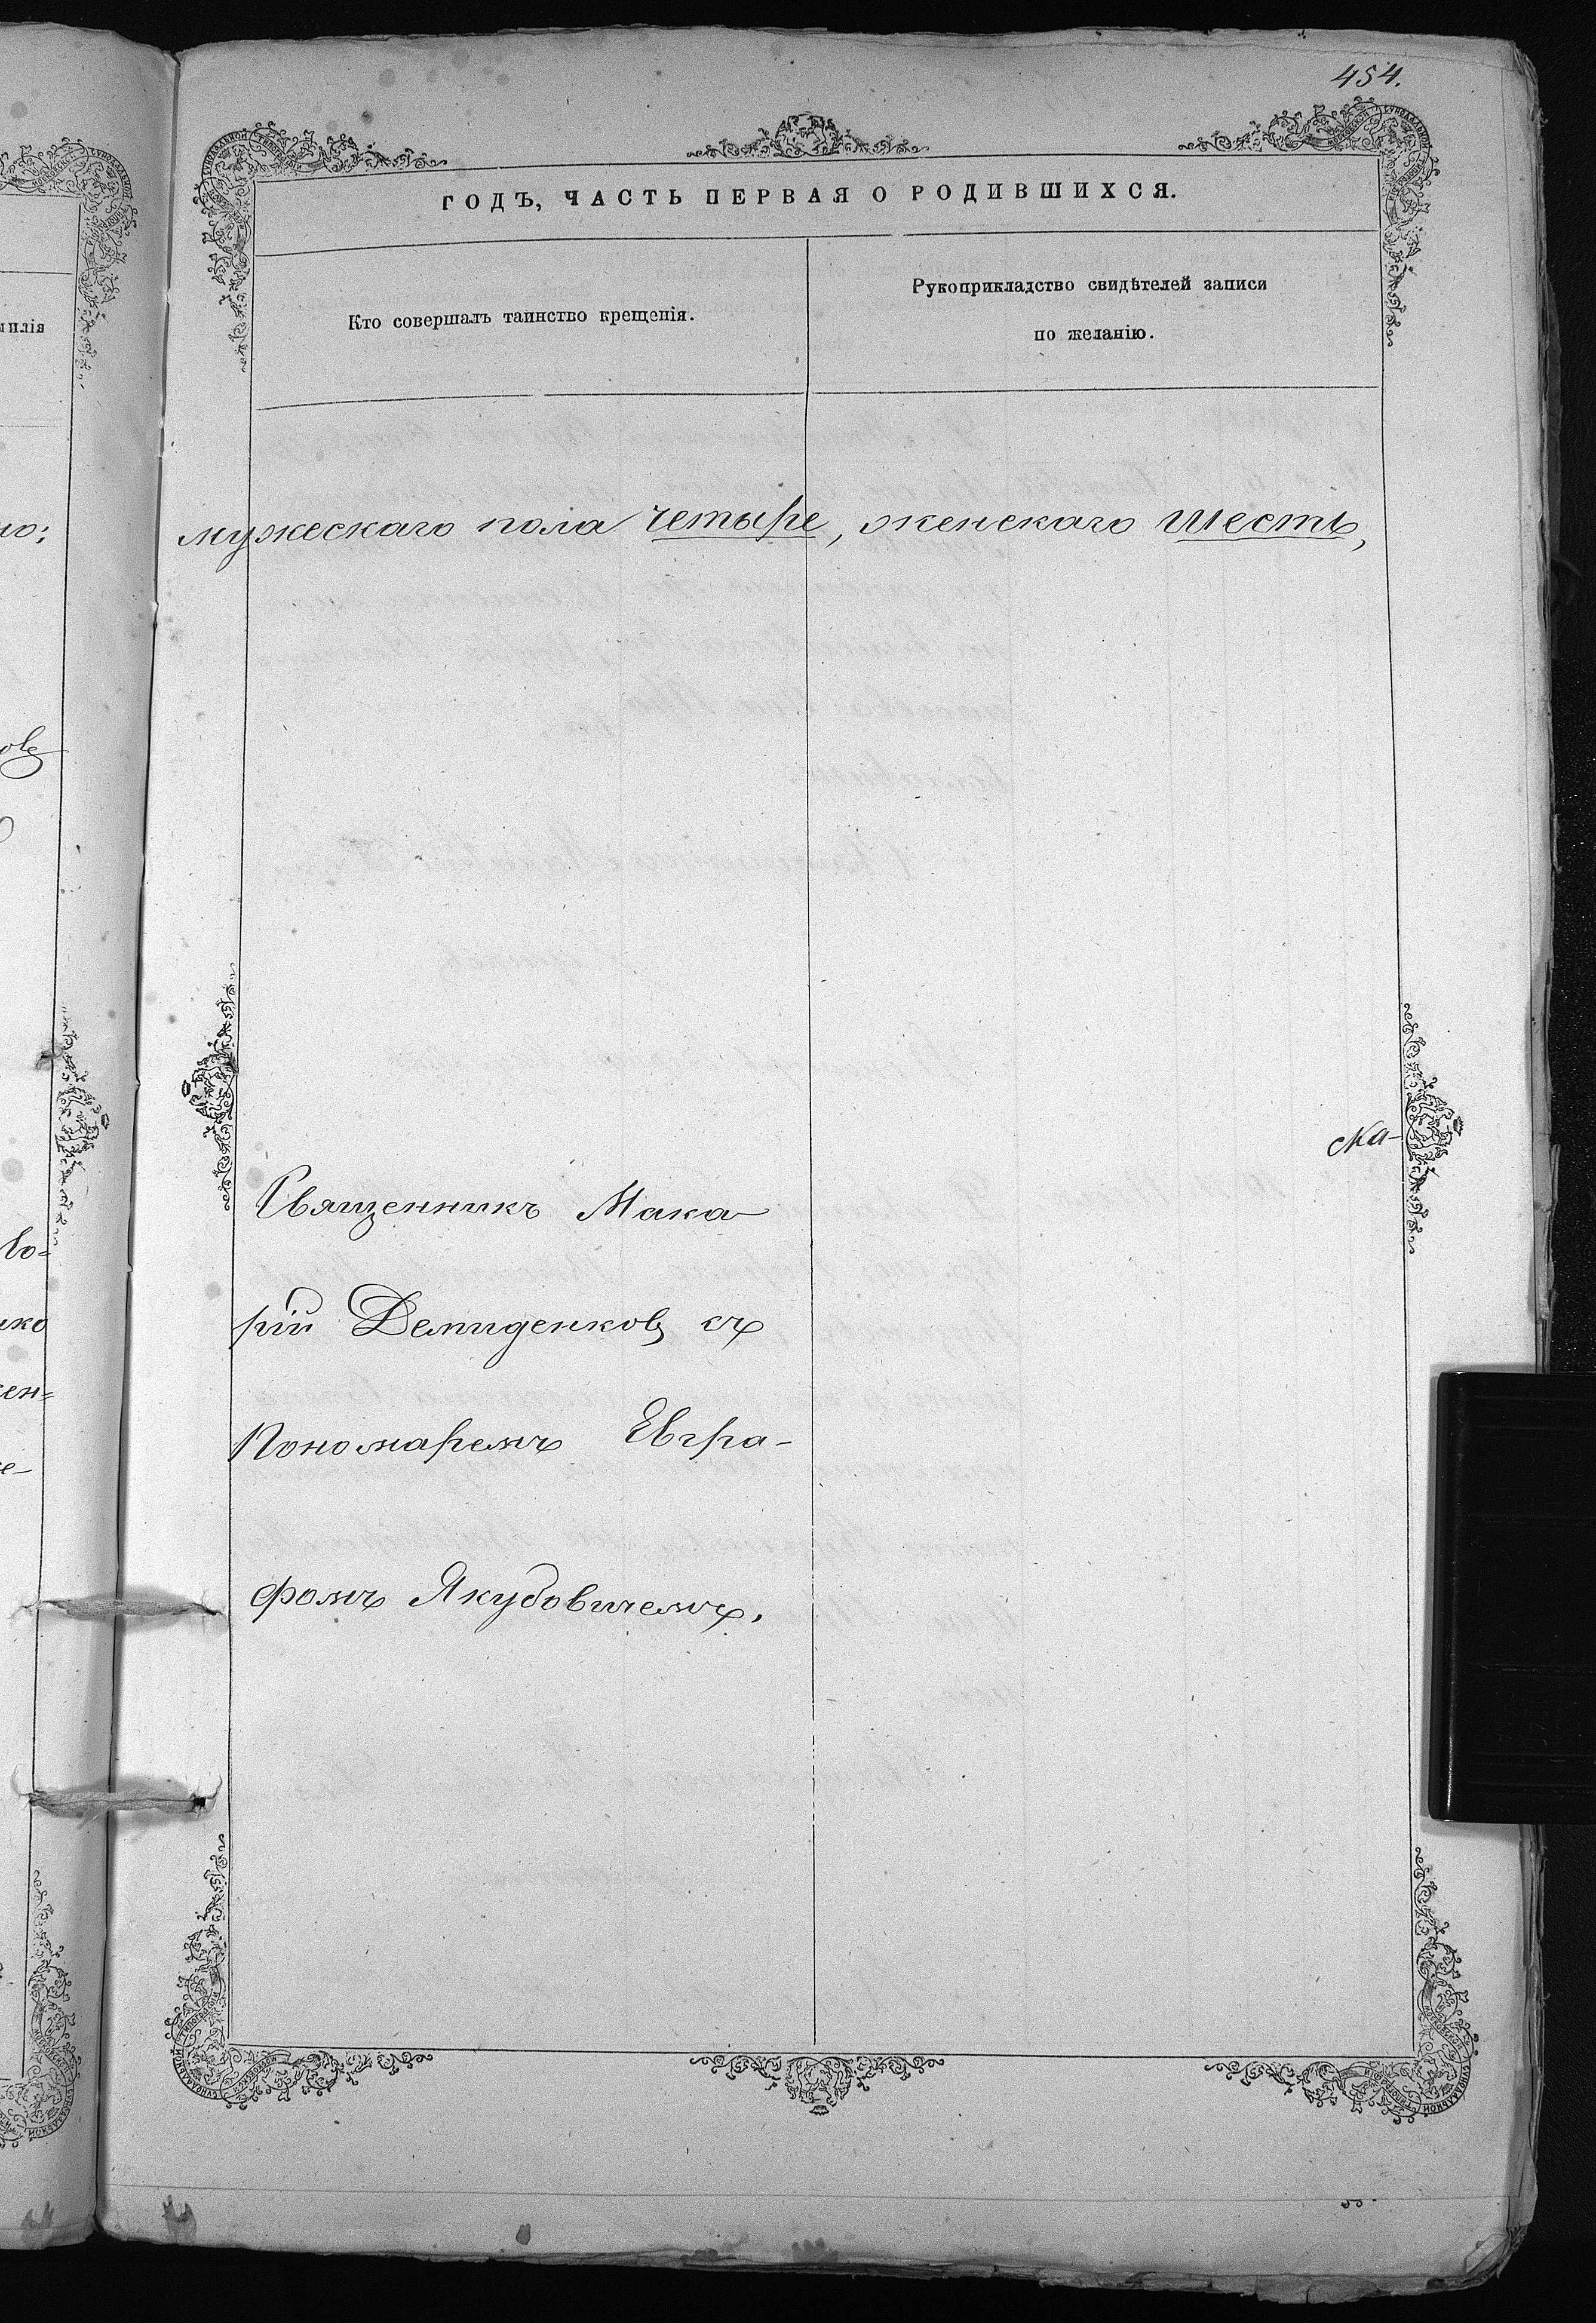 454.
ГОДЪ, ЧАСТЬ ПЕРВАЯ О РОДИВШИХСЯ.
Кто совершалъ таинство крещенія.
Рукоприкладство свидѣтелей записи
по желанію.
мужескаго пола четыре, женскаго шесть,
Ма-
Священникъ Мака
рій Демиденковъ съ
Пономаремъ Евгра-
фомъ Якубовичемъ.